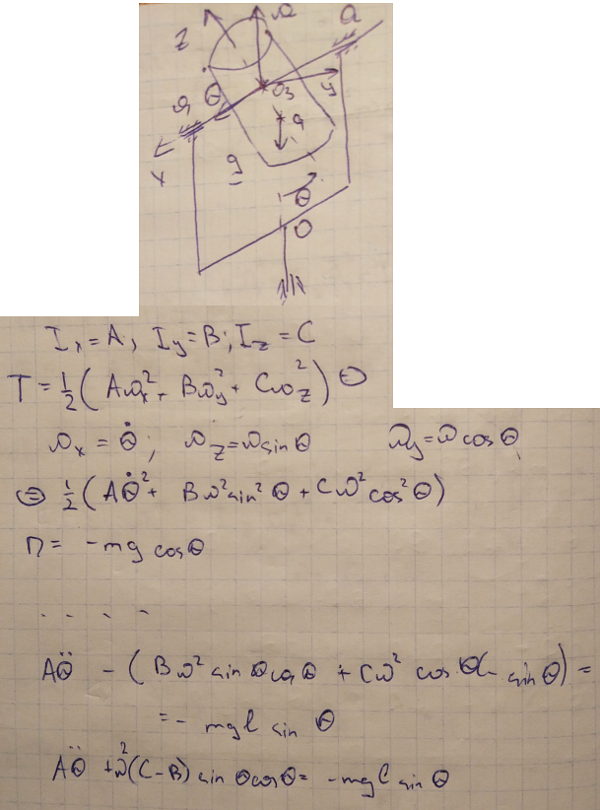 z
ω
a
θ
O₃
y
a
x
g
θ
O
I_x = A; I_y = B; I_z = C
T = ½(Aω_x² + Bω_y² + Cω_z²) ⊜
ω_x = θ̇; ω_z = ω sin θ ω_y = ω cos θ
⊜ ½(Aθ̇² + Bω² sin² θ + Cω² cos² θ)
П = -mg cos θ
. . . .
Aθ̈ - (Bω² sin θ cos θ + Cω² cos θ(- sin θ) =
= - mgl sin θ
Aθ̈ + ω²(C-B) sin θ cos θ = -mgl sin θ